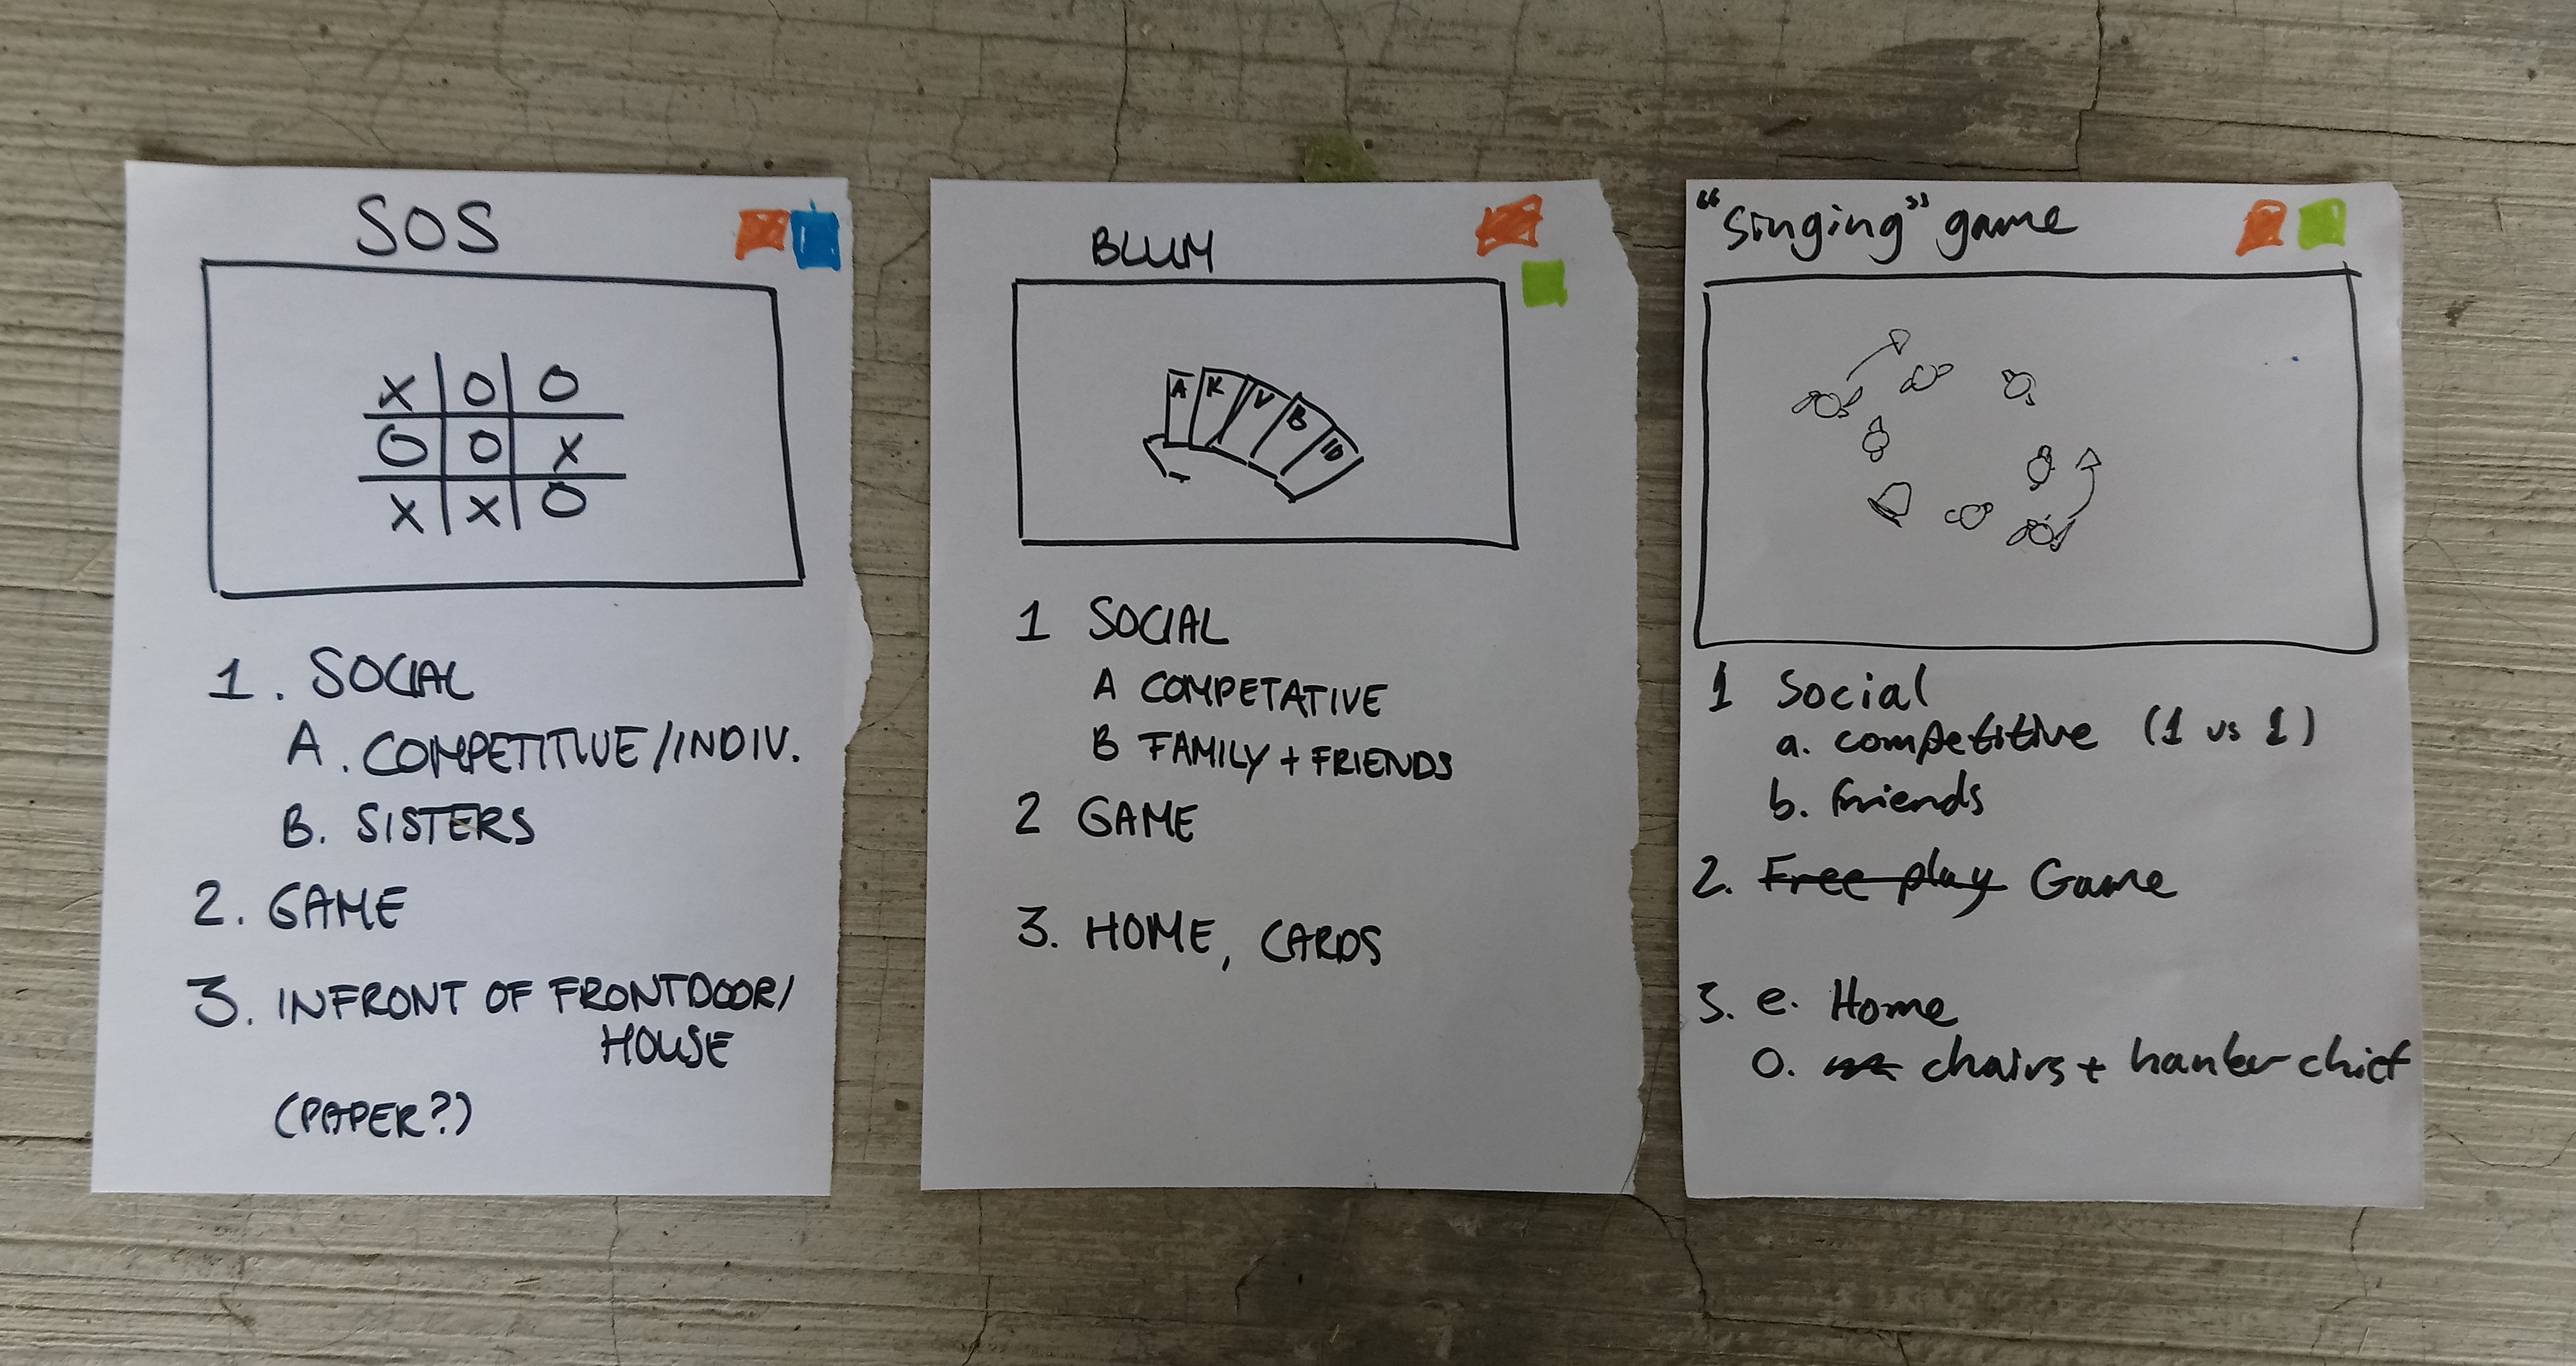 SOS
X O O
O O X
X X O
1. SOCIAL
A. COMPETITIVE/INDIV.
B. SISTERS
2. GAME
3. INFRONT OF FRONTDOOR/
HOUSE
(PAPER?)
BLUM
A K V B 10
1 SOCIAL
A COMPETATIVE
B FAMILY + FRIENDS
2 GAME
3. HOME, CARDS
"singing" game
1 Social
a. competitive (1 vs 1)
b. friends
2. Free play Game
3. e. Home
o. chairs + hankerchief